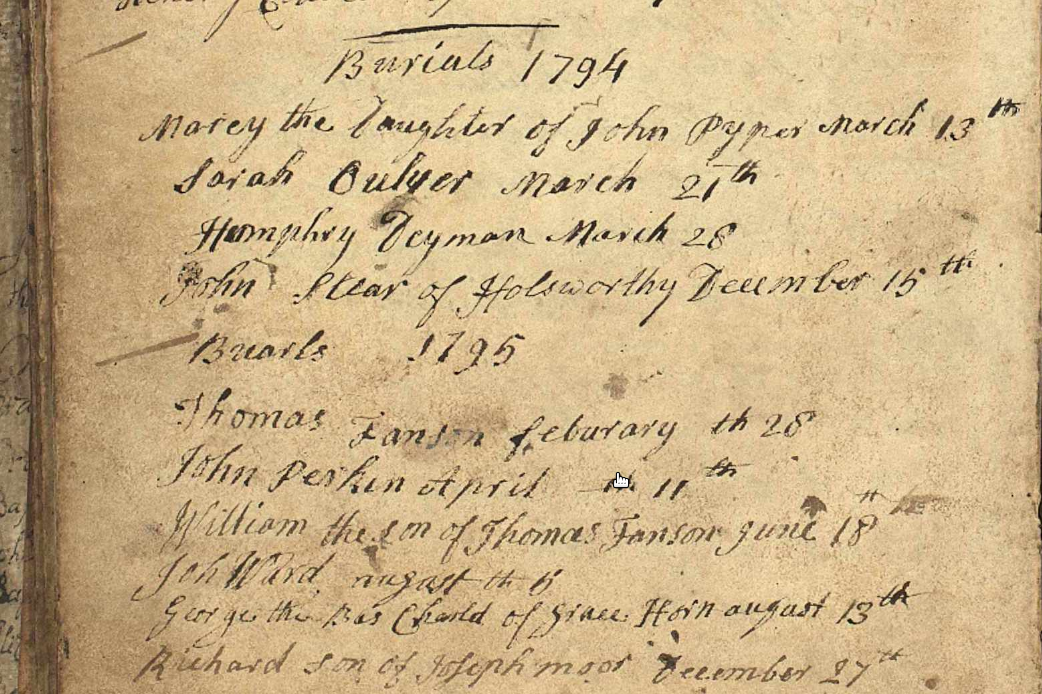 Burials 1794
Marey the Daughter of John Pyper March 13th
Sarah March 21th
Humphry Deyman March 28
John Stear of Holsworthy December 15th
Buarls 1795
Thomas Fanson feburary th 28
John Perkin April th 11th
William the son of Thomas Fanson june 18th
Joh Ward august th 5
George the Bas Charld of Grace Horn august 13th
Richard son of Joseph moor December 27th